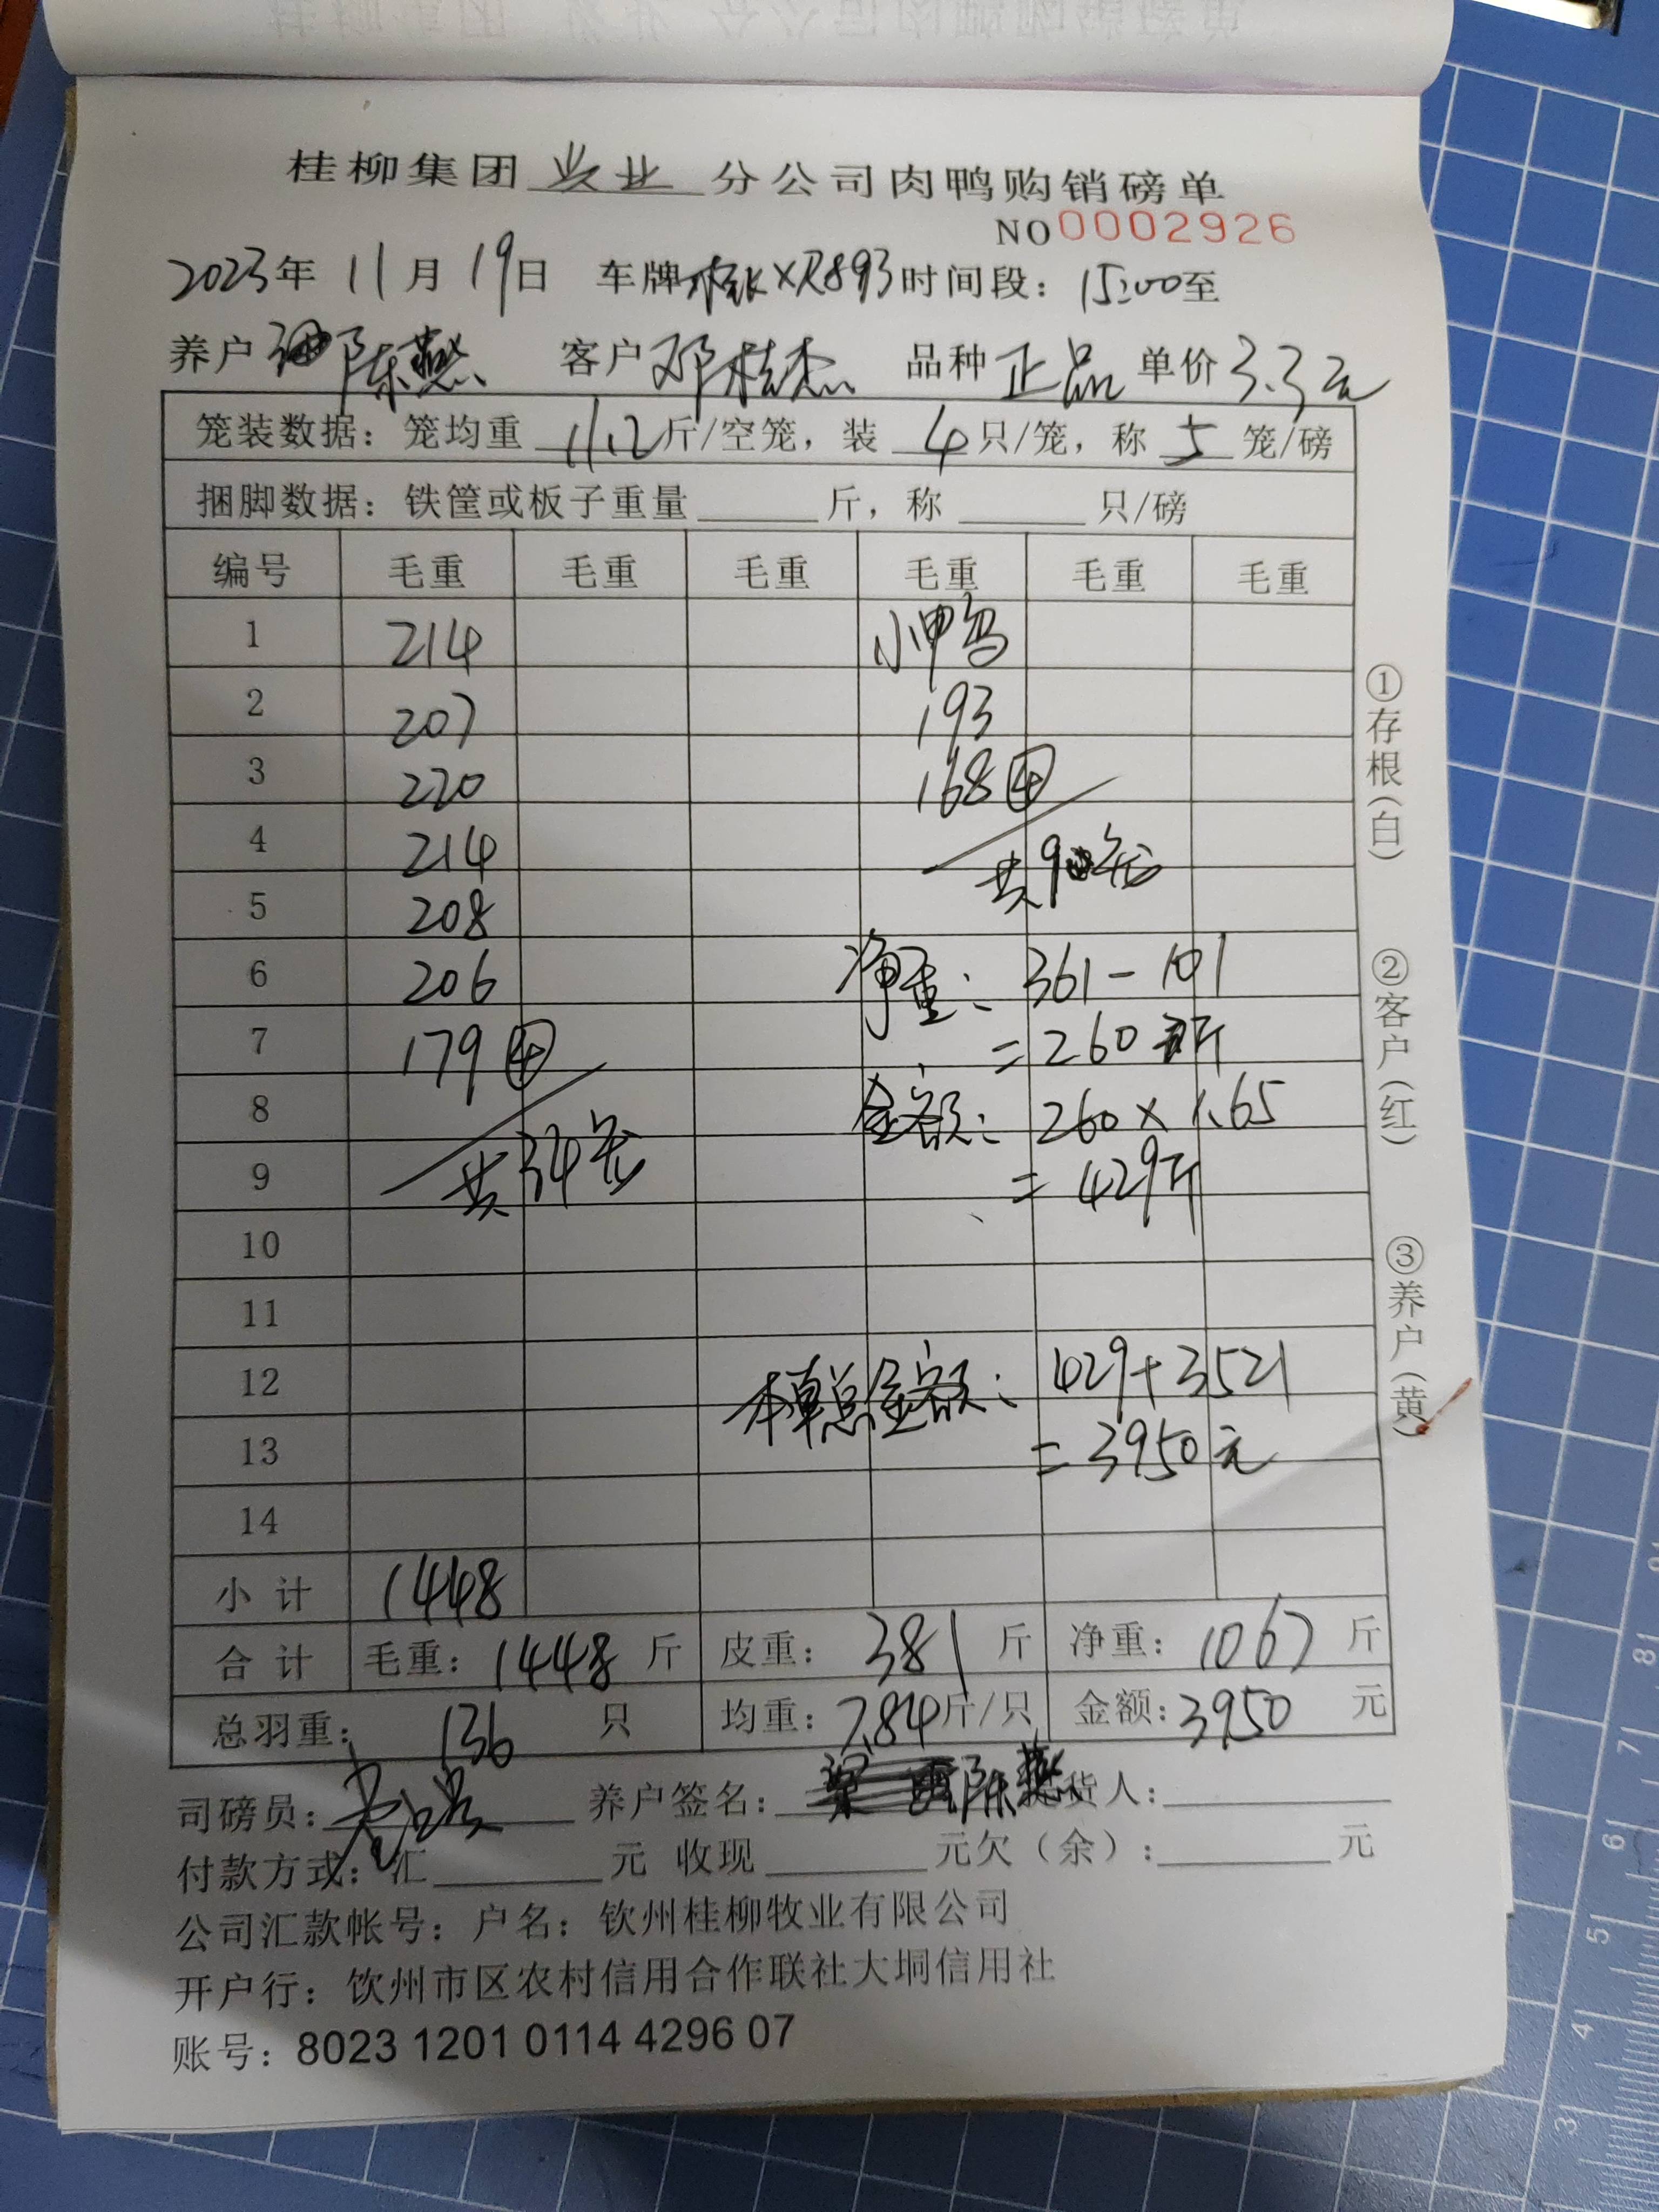 桂柳集团兴业分公司肉鸭购销磅单
NO 0002926
2023年 11月 19日 车牌 XR893 时间段: 15:00至
养户 陈燕 客户 邓桂杰 品种 正品 单价 3.3元
笼装数据: 笼均重 11.2 斤/空笼, 装 4 只/笼, 称 5 笼/磅
捆脚数据: 铁筐或板子重量 斤, 称 只/磅
编号 毛重 毛重 毛重 毛重 毛重 毛重
1 214 小甲鸟
2 207 193
3 220 168 ④
4 214
5 208 共9笼
6 206 净重: 361-101
7 179 ④ =260斤
8 金额: 260×1.65
9 共34笼 =429斤
10
11
12 本单总金额: 429+3521
13 =3950元
14
小计 1448
合计 毛重: 1448 斤 皮重: 381 斤 净重: 1067 斤
总羽重: 136 只 均重: 7.84斤/只 金额: 3950 元
司磅员: 养户签名: 陈燕 货人:
付款方式: 汇 元 收现 元欠(余): 元
公司汇款帐号: 户名: 钦州桂柳牧业有限公司
开户行: 钦州市区农村信用合作联社大垌信用社
账号: 8023 1201 0114 4296 07
①存根(白)
②客户(红)
③养户(黄)